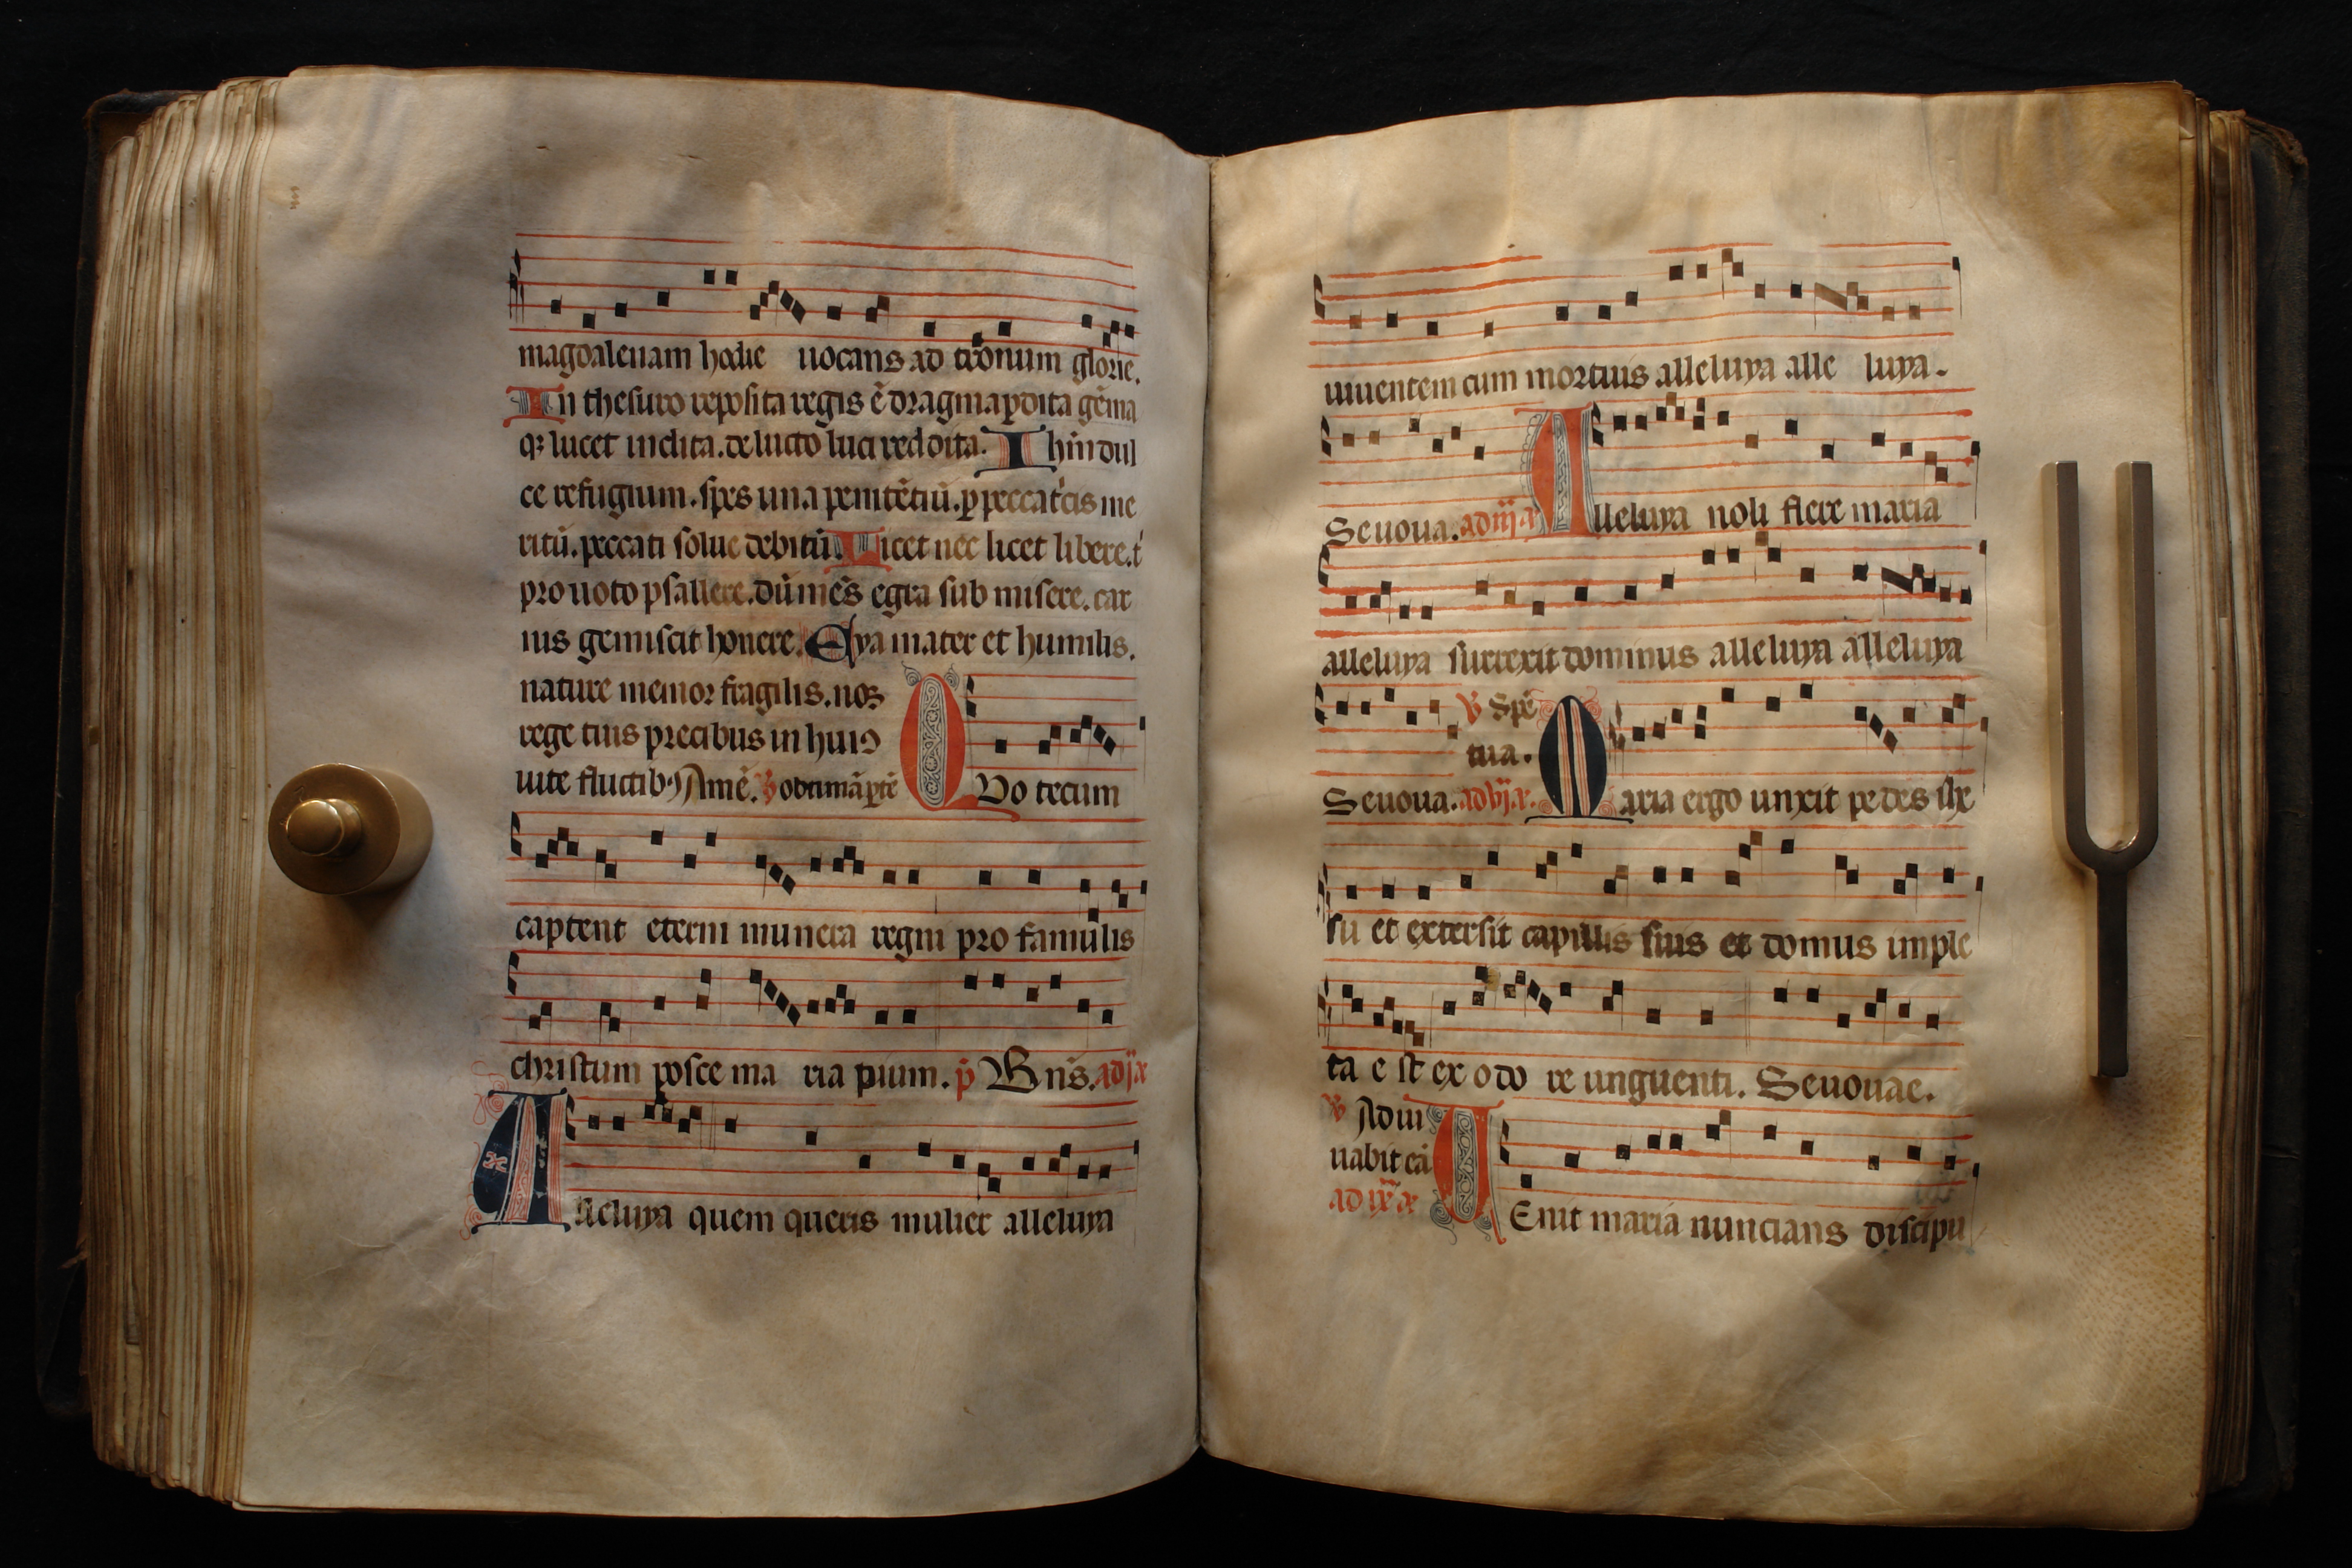 magdalenam hodie uocans ad tronum glorie.
In thesuro reposita regis ē dragma ꝑdita gēma
qꝫ lucet inclita. de lucto luci reddita. Ihū dul
ce refugium. spes una penitētiū. ꝑ peccatͥcis me
ritū. peccati solue debitū Licet nec licet libere. t
pro uoto psallere. dū mēs egra sub misere. car
nis gemiscit honere. Eya mater et humilis.
nature memor fragilis. nos
rege tuis precibus in huiꝰ
uite fluctibꝰ Amē. ℣ obtimā ꝑtē
Quo tecum
captent eterni munera regni pro famulis
christum posce ma ria pium. p̄ Bn̄s. ad ij a
Alleluya quem queris mulier alleluya
uiuentem cum mortuis alleluya alle luya.
Seuoua. ad iij a Alleluya noli flere maria
alleluya surrexit dominus alleluya alleluya
℣ Spē
tua.
Seuoua. ad vj a. Maria ergo unxit pedes ihe
su et extersit capillis suis et domus imple
ta e st ex odo re unguenti. Seuouae.
℣ Adiu
uabit eā
ad ix a UEnit maria nuncians discipu